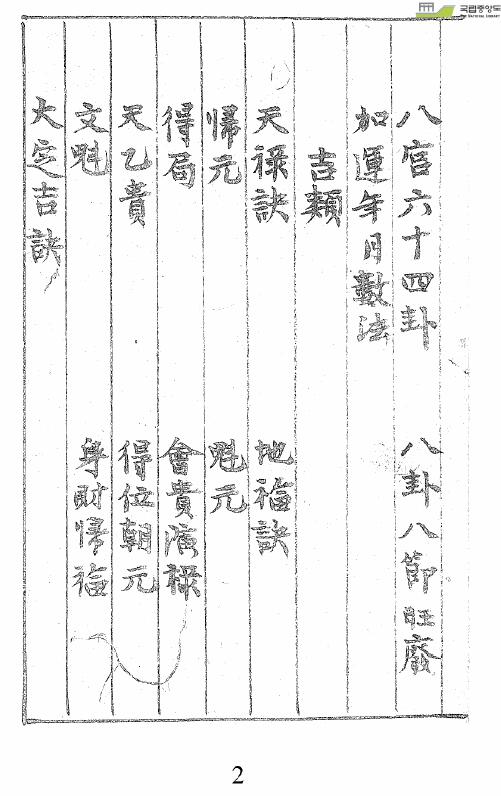 국립중앙도
THE NATIONAL LIBRARY
八宮六十四卦 八卦八節旺廢
加運年月數法
吉類
天祿訣 地福訣
帰元 魁元
得局 會貴演祿
天乙貴 得位朝元
文魁 身財帰福
大定吉訣
2